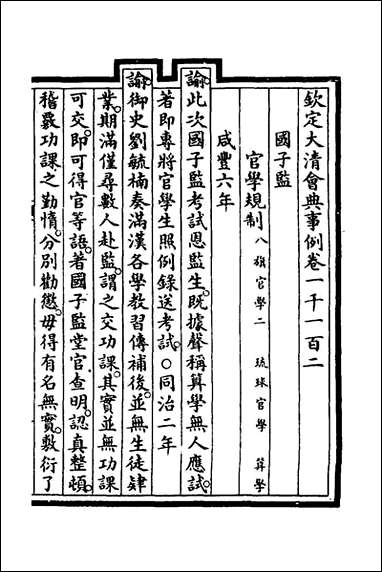 欽定大清會典事例卷一千一百二
國子監
官學規制 八旗官學二 琉球官學 算學
咸豐六年
諭此次國子監考試恩監生。既據聲稱算學無人應試。
著即專將官學生照例錄送考試。○同治二年
諭御史劉毓楠奏滿漢各學教習傳補後。並無生徒肄
業。期滿僅尋數人赴監。謂之交功課。其實並無功課
可交。即可得官等語。著國子監堂官查明。認真整頓。
稽覈功課之勤惰。分別勸懲。毋得有名無實。敷衍了